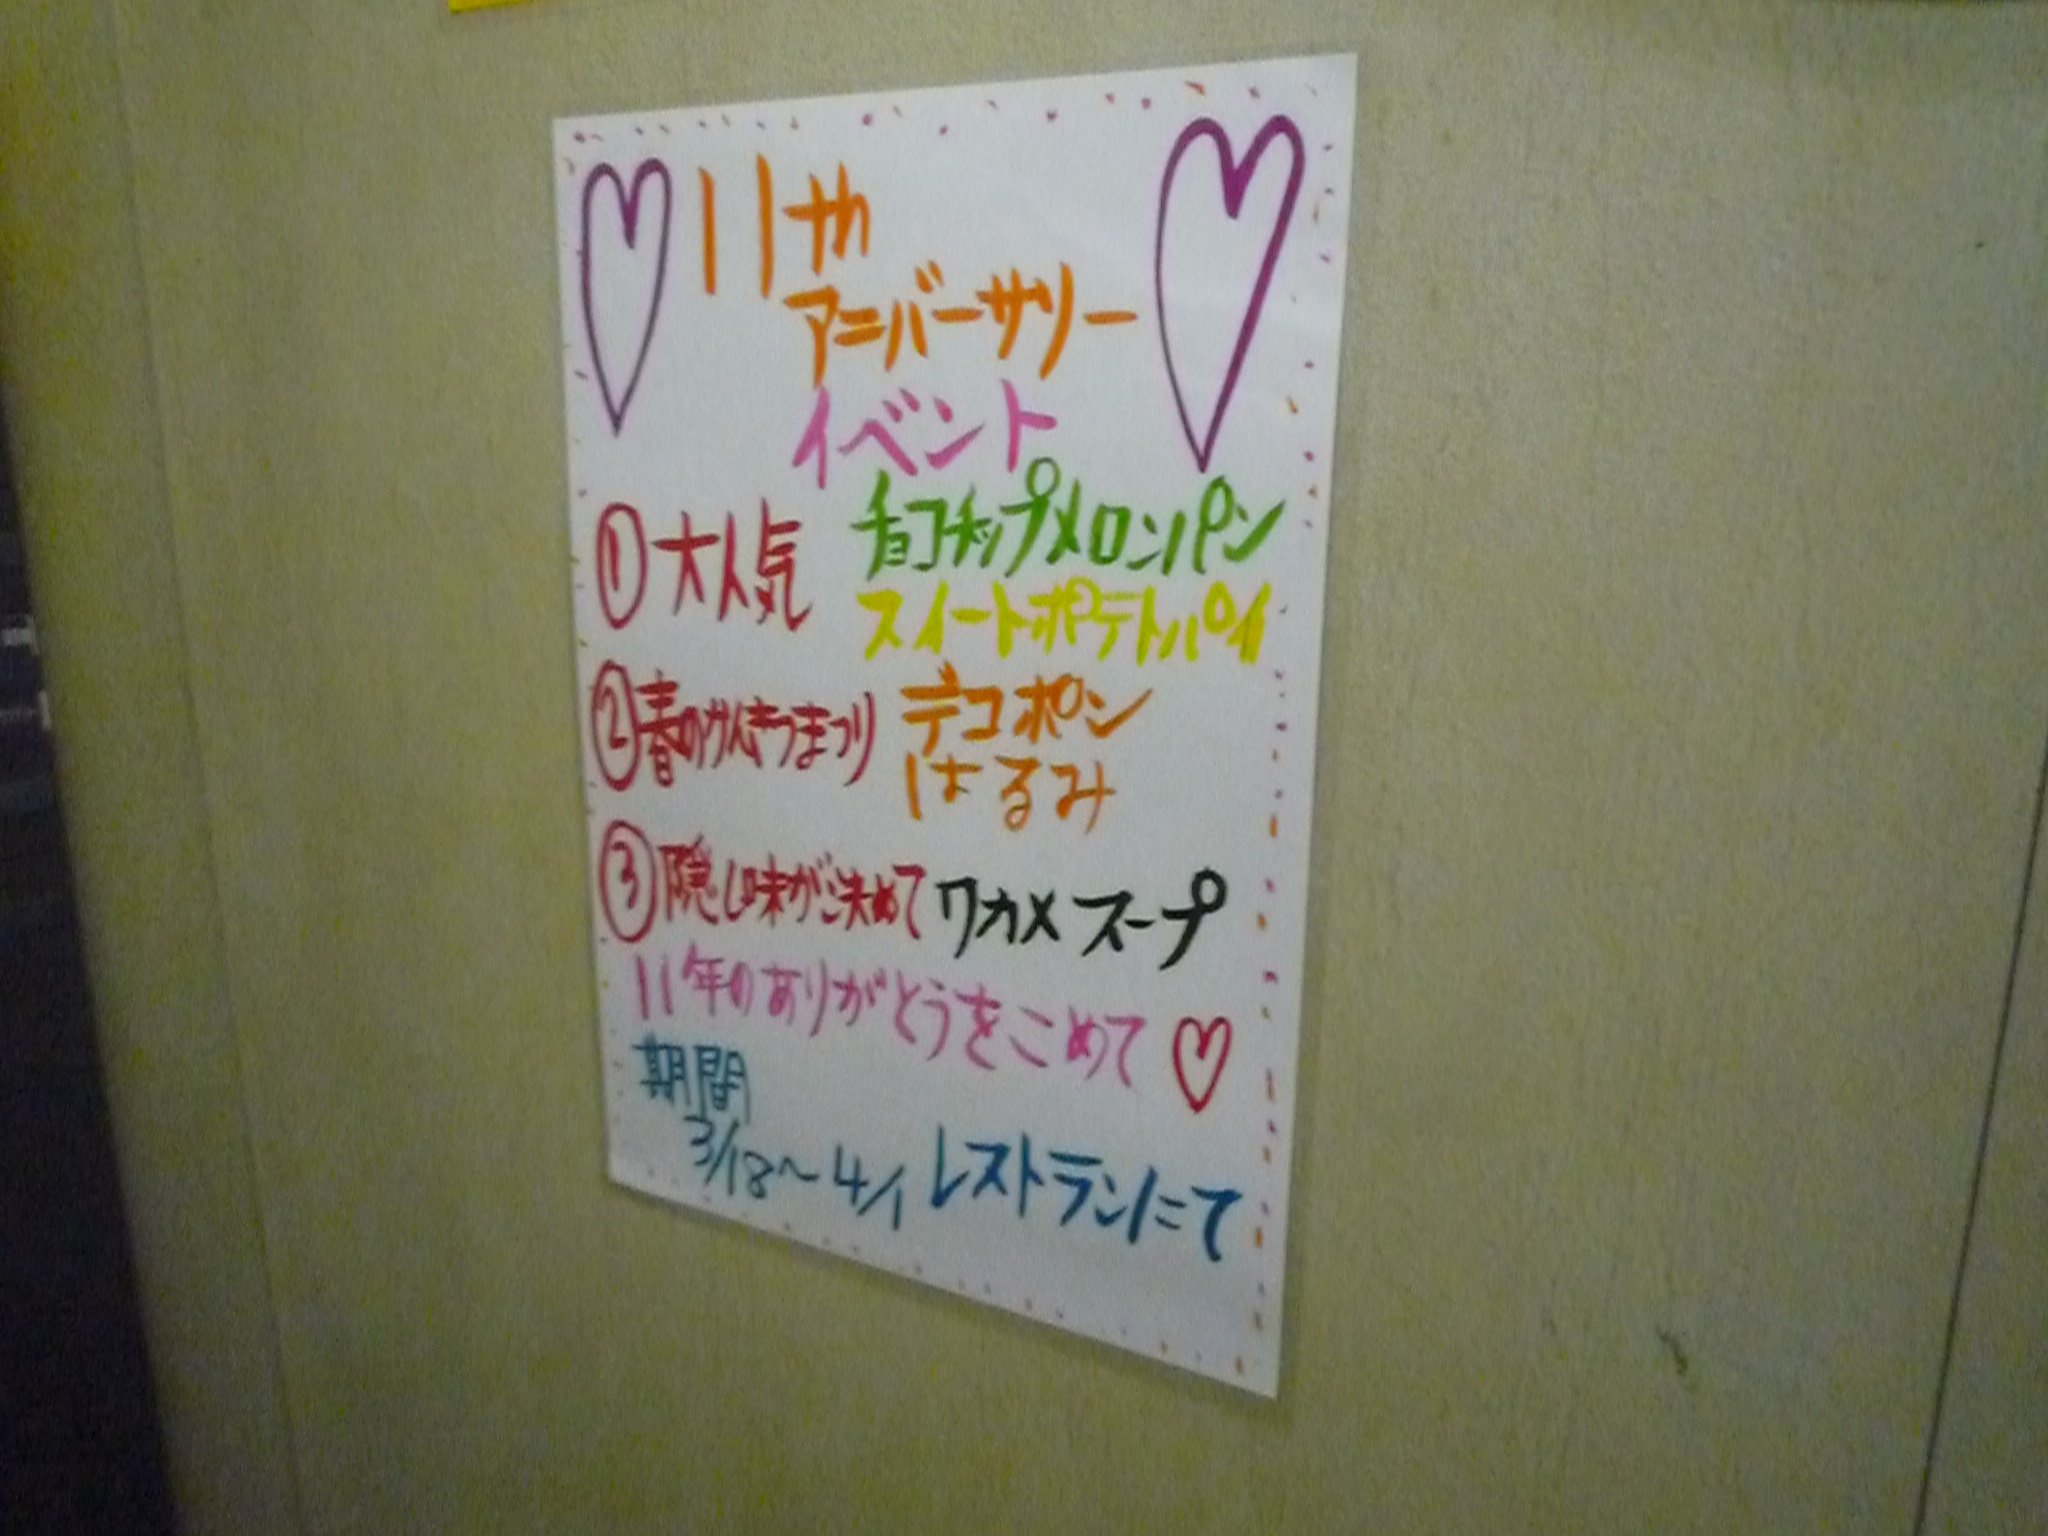 11th
アニバーサリー
イベント
①大人気 チョコチップメロンパン
スイートポテトパイ
②春のかんきつまつり デコポン
はるみ
③隠し味が決めて ワカメスープ
11年のありがとうをこめて♡
期間
3/18〜4/1 レストランにて